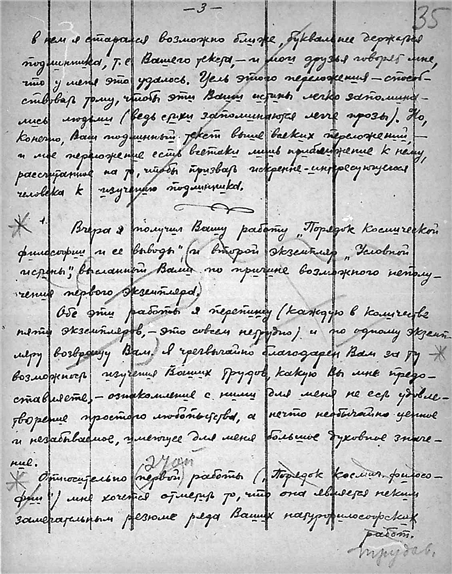 — 3 —
35
в нем я старался возможно ближе, буквальнее держаться
подлинника, т.е. Вашего текста, — и мои друзья говорят мне,
что у меня это удалось. Цель этого переложения — способ-
ствовать тому, чтобы эти Ваши истины легко запомина-
лись людьми (ведь стихи запоминаются легче прозы). Но,
конечно, Ваш подлинный текст выше всяких переложений —
и мое переложение есть всетаки лишь приближение к нему,
рассчитанное на то, чтобы призвать искренне-интересующегося
человека к изучению подлинника.
Вчера я получил Вашу работу „Порядок Космической
философии и ее выводы" (и второй экземпляр „Условной
истины", высланной Вами по причине возможного неполу-
чения первого экземпляра.)
Обе эти работы я перепишу (каждую в количестве
пяти экземпляров, — это совсем нетрудно) и по одному экземп-
ляру возвращу Вам. Я чрезвычайно благодарен Вам за ту
возможность изучения Ваших трудов, какую Вы мне предо-
ставляете, — ознакомление с ними для меня не есть удовле-
творение простого любопытства, а нечто необычайно ценное
и незабываемое, имеющее для меня большое духовное значе-
ние.
этой
Относительно (первой) работы („Порядок Космич. филосо-
фии") мне хочется отметить то, что она является неким
замечательным резюме ряда Ваших натурфилософских
работ.
трудов.